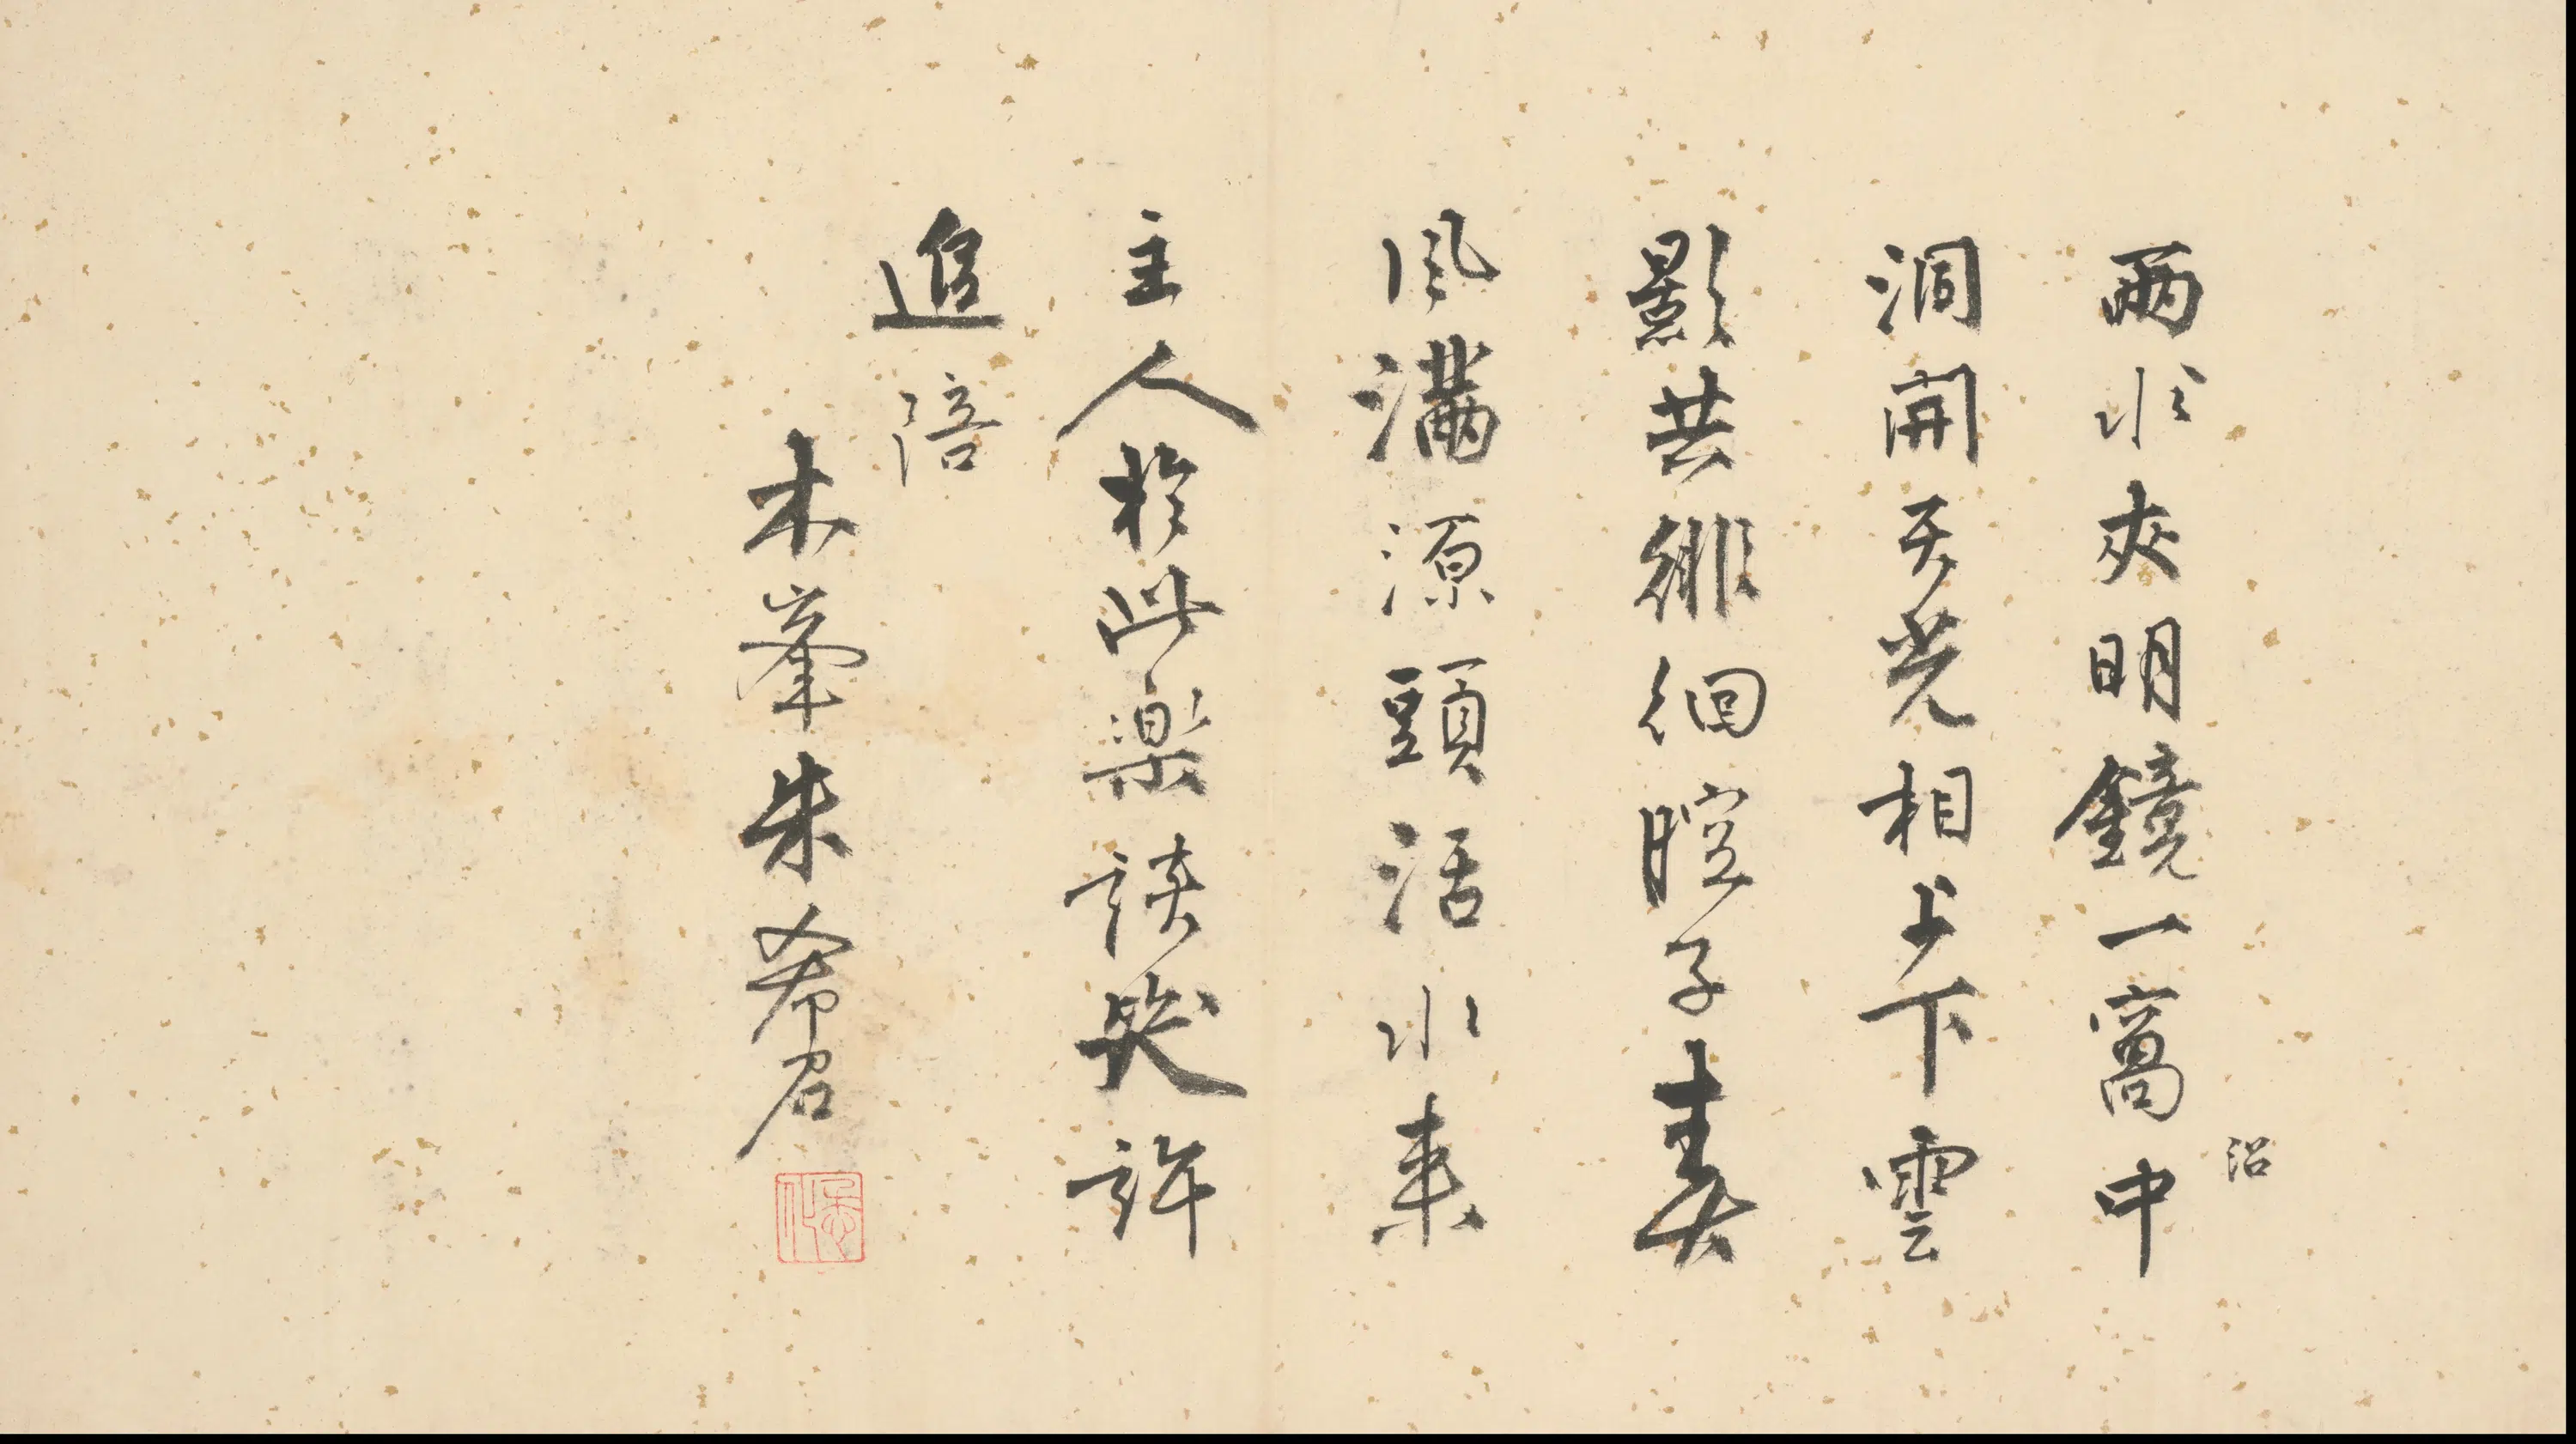 沼
兩水夾明鏡一窩中
洞開天光相上下雲
影共徘徊腔子春
風滿源頭活水来
主人於此樂談許
追陪
木峯朱希召